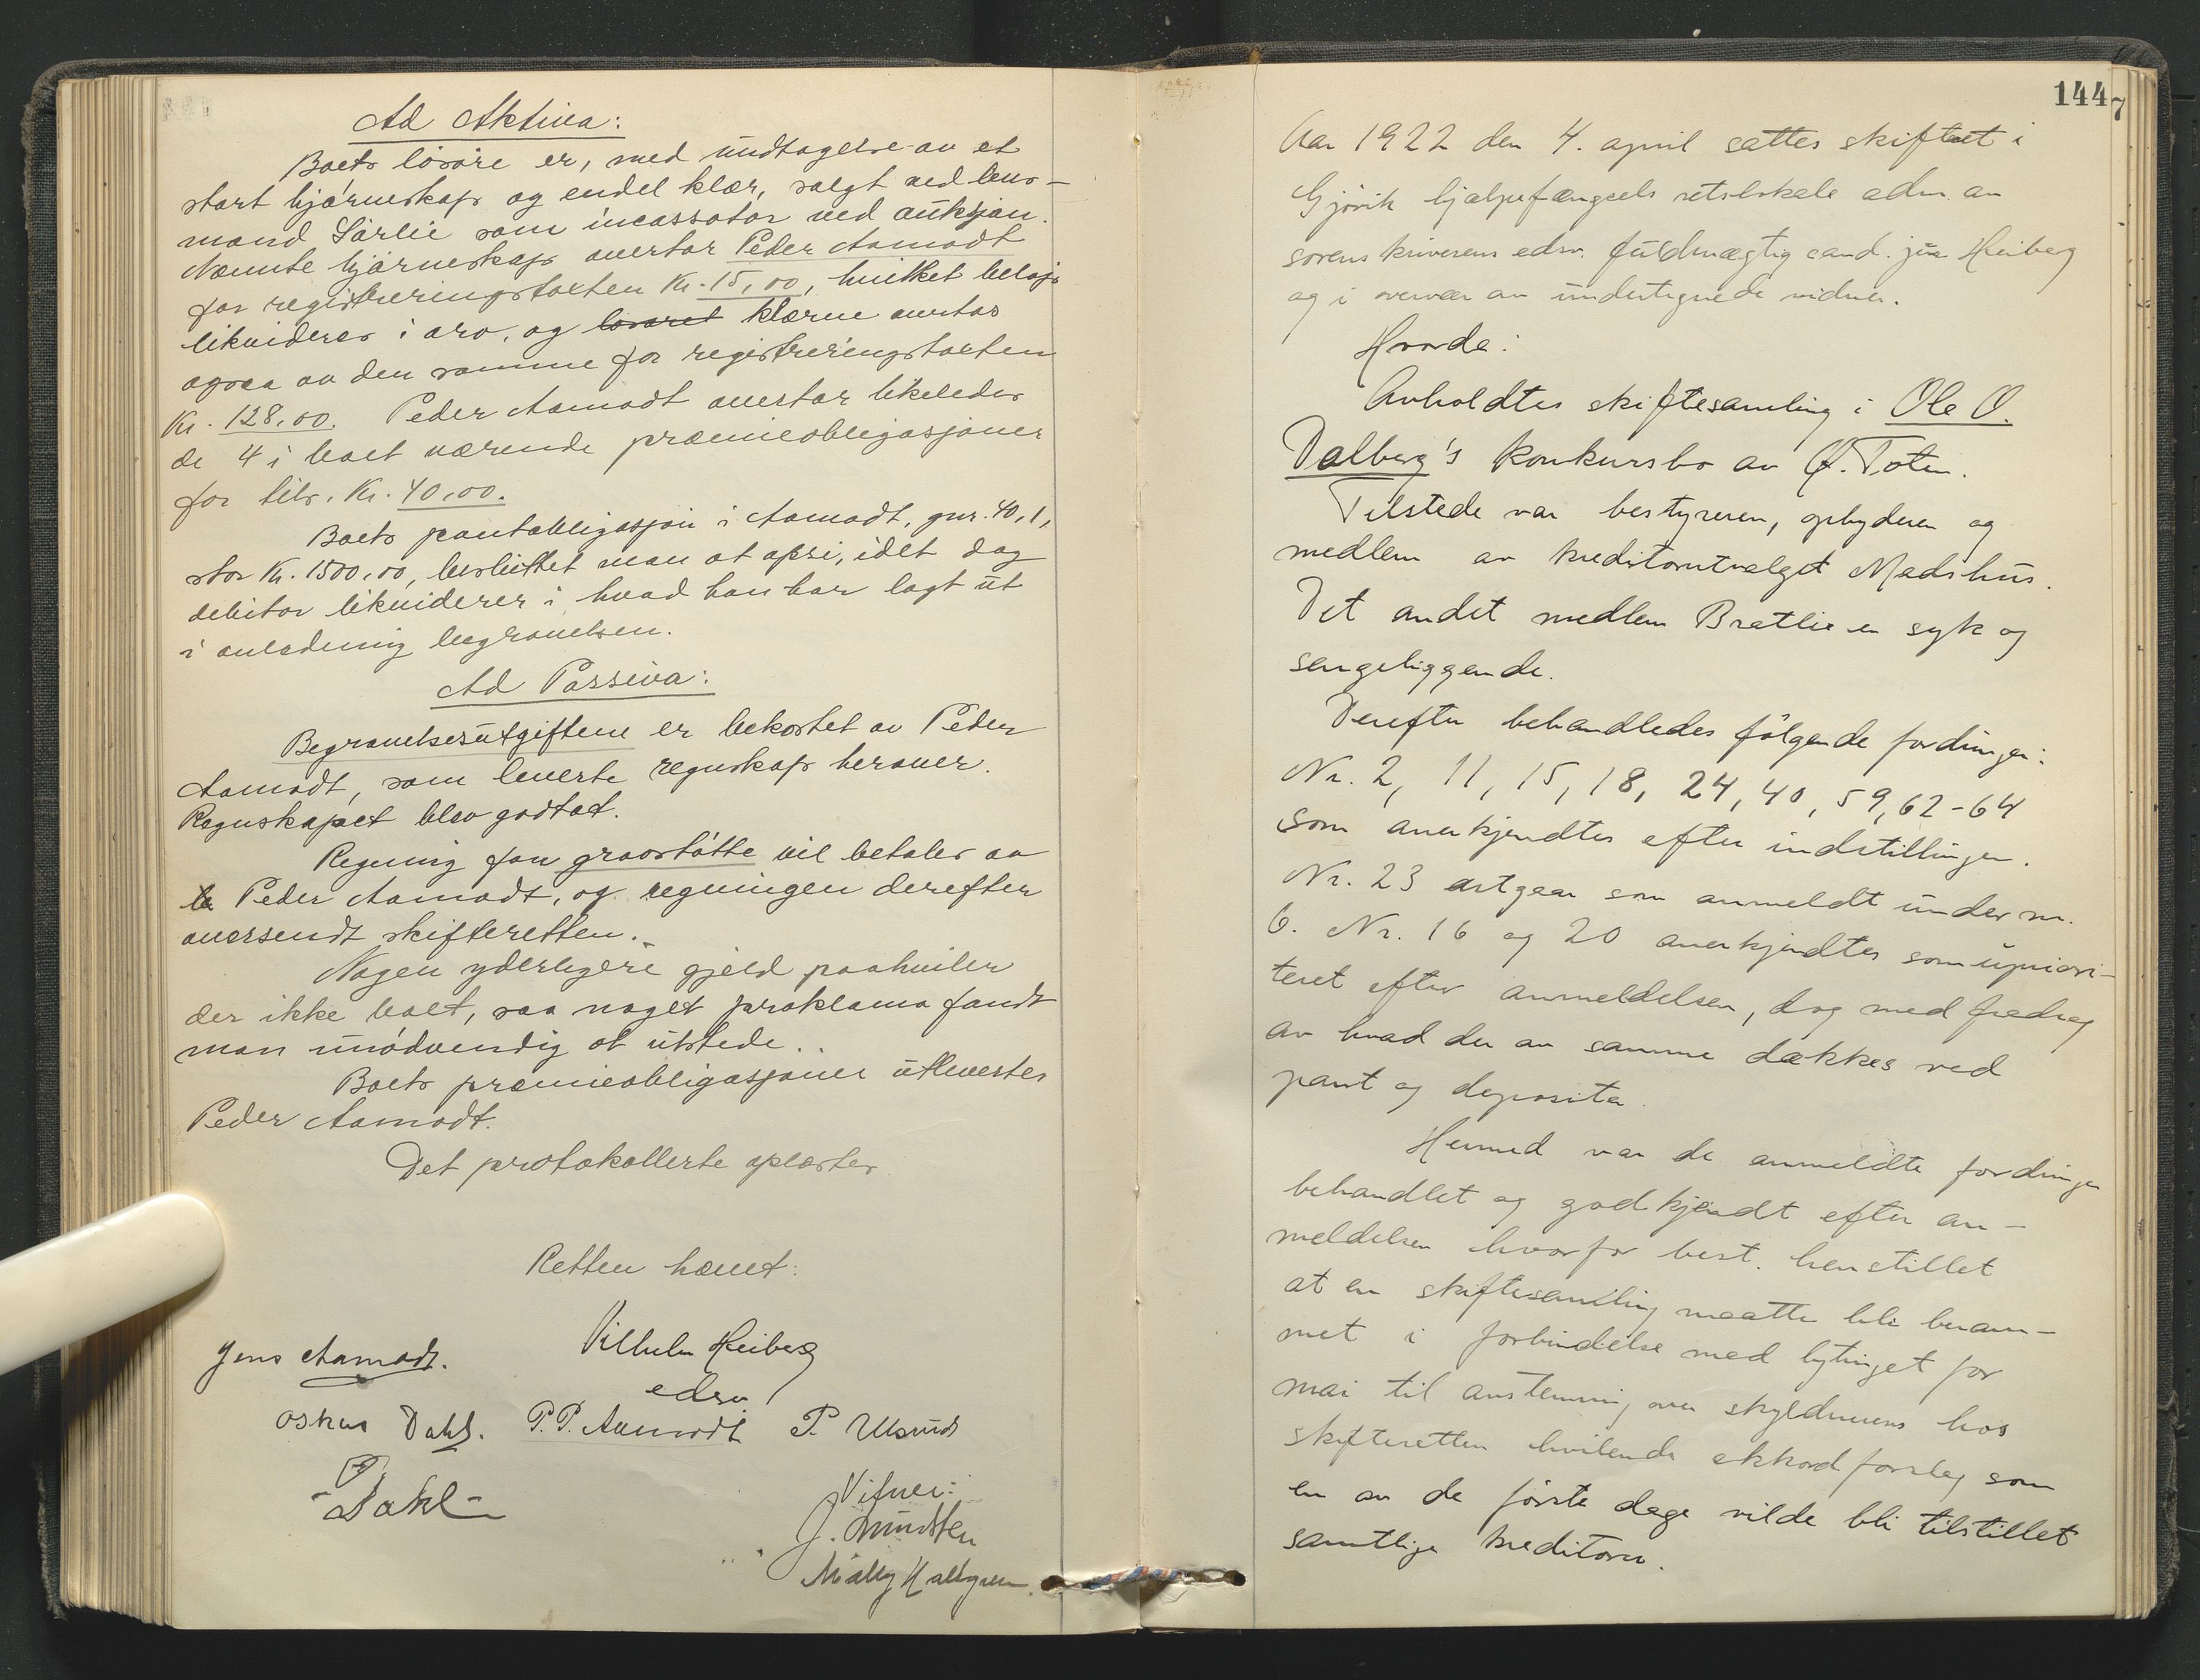 Ad Aktiva:
Boets løsøre er, med undtagelse av et
stort hjørneskap og endel klær, solgt ved lens-
mand Sørlie som incassator ved auksjon.
Nævnte hjørneskap overtar Peder Aamodt
for registreringstaksten Kr. 15,00, hvilket beløp
likvideres i arv, og løsøret klærne overtas
ogsaa av den samme for registreringstaksten
Kr. 128,00. Peder Aamodt overtar likeledes
de 4 i boet værende præmieobligasjoner
for tils. Kr. 40,00.
Boets pantobligasjon i Aamodt, gnr. 40,1,
stor Kr. 1500,00, besluttet man at opsi, idet dog
debitor likviderer i hvad han har lagt ut
i anledning begravelsen.
Ad Passiva:
Begravelsesutgiftene er bekostet av Peder
Aamodt, som leverte regnskap herover.
Regnskapet blev godtat.
Regning for gravstøtte vil betales av
Peder Aamodt, og regningen derefter
oversendt skifteretten.
Nogen yderligere gjeld paahviler
der ikke boet, saa noget proklama fandt
man unødvendig at utstede.
Boets præmieobligasjoner utlevertes
Peder Aamodt.
Det protokollerte oplæstes
Retten hævet:
Vilhelm Heiberg
edsv.
Jens Aamodt.
Oskar Dahl. P.P. Aamodt P.
Dahl
Vitner:
J. Amundsen
Mally Hallgren.
144
7
Aar 1922 den 4. april sattes skifteret i
Gjøvik hjælpefængsels retslokale adm. av
sorenskriverens edsv. fuldmægtig cand. jur Heiberg
og i overvær av undertegnede vidner.
Hvorda:
Avholdtes skiftesamling i Ole O.
Dalberg's konkursbo av Ø. Toten.
Tilstede var bestyreren, opbyderen og
medlem av kreditorutvalget Madshus.
Det andet medlem Bratlie er syk og
sengeliggende.
Derefter behandledes følgende fordringer:
Nr. 2, 11, 15, 18, 24, 40, 59, 62-64
som anerkjendtes efter indstillingen.
Nr. 23 utgaar som anmeldt under nr.
6. Nr. 16 og 20 anerkjendtes som upriori-
teret efter anmeldelsen, dog med fradrag
av hvad der av samme dækkes ved
pant og deposita.
Hermed var de anmeldte fordringer
behandlet og godkjendt efter an-
meldelsen hvorfor best. henstillet
at en skiftesamling maatte bli beram-
met i forbindelse med bytinget for
mai til avstemning over skyldnerens hos
skifteretten hvilende akkordforslag som
en av de første dage vilde bli tilstillet
samtlige kreditorer.